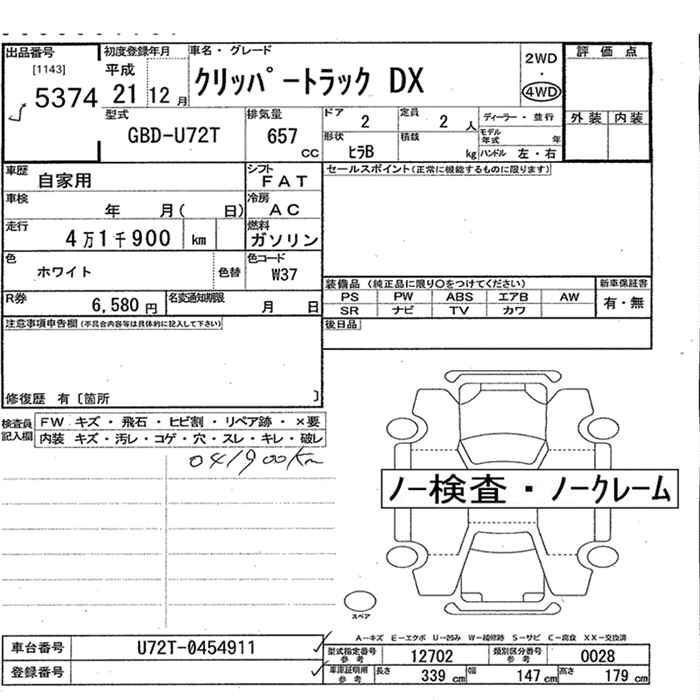 出品番号 初度登録年月 車名・グレード 2WD 評価点
[1143] 平成 ・
5374 21 12月 クリッパートラック DX 4WD
型式 排気量 ドア 定員 ディーラー・並行 外装 内装
GBD-U72T 657 CC 2 2人 モデル年式 年
形状 積載
ヒラB kg ハンドル 左・右
車歴 自家用 シフト FAT セールスポイント(正常に機能するものに限ります)
車検 年 月( 日) 冷房 AC
走行 4万1千900 km 燃料 ガソリン
色 ホワイト 色替 色コード W37
装備品(純正品に限り○をつけてください) 新車保証書
PS PW ABS エアB AW 有・無
SR ナビ TV カワ
R券 6,580円 名変通知期限 月 日
後日品
注意事項申告欄(不具合内容等は具体的に記入して下さい)
修復歴 有〔箇所 〕
検査員記入欄 FW キズ・飛石・ヒビ割・リペア跡・×要
内装 キズ・汚レ・コゲ・穴・スレ・キレ・破レ
041900Km
ノー検査・ノークレーム
スペア
A-キズ E-エクボ U-凹み W-補修跡 S-サビ C-腐食 XX-交換済
車台番号 U72T-0454911 型式指定番号参考 12702 類別区分番号参考 0028
登録番号 車庫証明用参考 長さ 339cm 幅 147cm 高さ 179cm